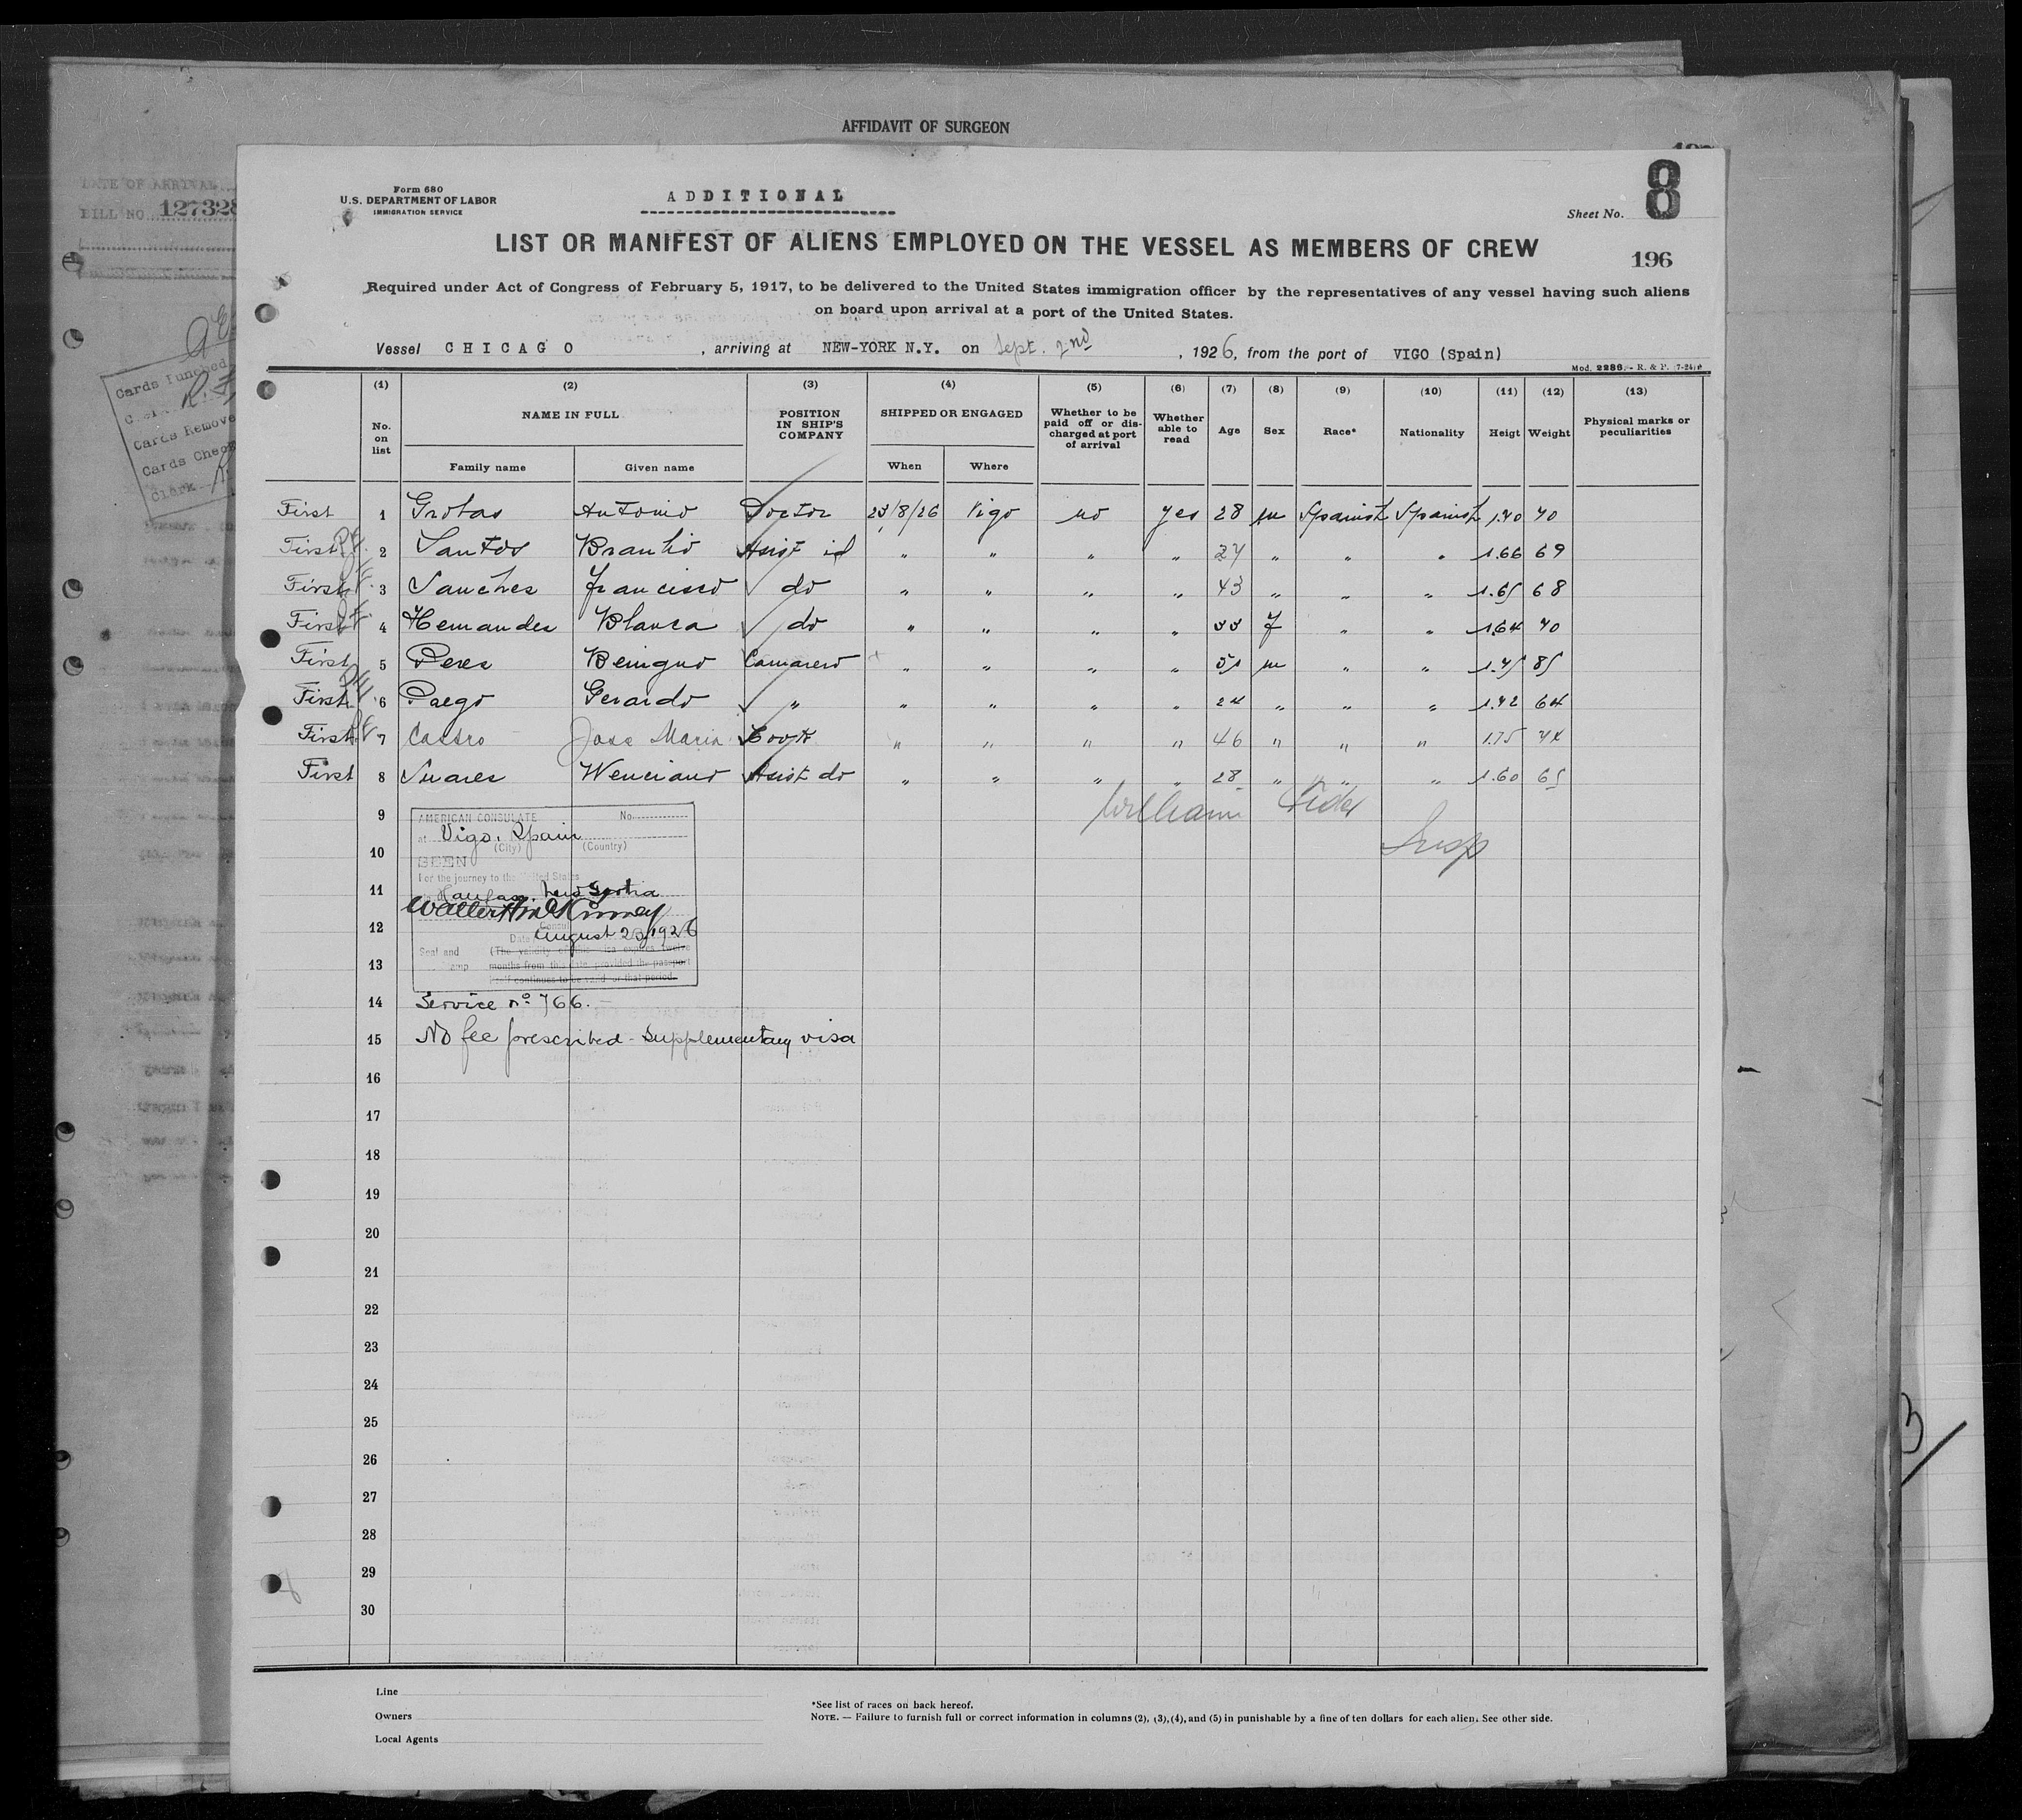 AFFIDAVIT OF SURGEON
DATE OF ARRIVAL
BILL NO. 127328
Cards Punched
Cards Remove
Cards Check
Clerk
Form 680
U.S. DEPARTMENT OF LABOR
IMMIGRATION SERVICE
ADDITIONAL
Sheet No. 8
LIST OR MANIFEST OF ALIENS EMPLOYED ON THE VESSEL AS MEMBERS OF CREW
196
Required under Act of Congress of February 5, 1917, to be delivered to the United States immigration officer by the representatives of any vessel having such aliens
on board upon arrival at a port of the United States.
Vessel CHICAGO, arriving at NEW-YORK N.Y. on Sept. 2nd, 1926, from the port of VIGO (Spain)
Mod. 2286. - R. & P. (7-24)
(1) (2) (3) (4) (5) (6) (7) (8) (9) (10) (11) (12) (13)
No. on list NAME IN FULL POSITION IN SHIP'S COMPANY SHIPPED OR ENGAGED Whether to be paid off or discharged at port of arrival Whether able to read Age Sex Race* Nationality Heigt Weight Physical marks or peculiarities
Family name Given name When Where
First 1 Grobas Antonio Doctor 23/8/26 Vigo no yes 28 m Spanish Spanish 1.70 70
First 2 Santos Braulio Asist id " " " " 27 " " " 1.66 69
First 3 Sanches Francisco do " " " " 43 " " " 1.65 68
First 4 Hernandez Blanca do " " " " 33 f " " 1.64 70
First 5 Perez Benigno Camarero " " " " 51 m " " 1.75 85
First 6 Paego Gerardo " " " " " 24 " " " 1.72 64
First 7 Castro Jose Maria Cook " " " " 46 " " " 1.75 74
First 8 Suarez Wenciano Asist do " " " " 28 " " " 1.60 65
William
Insp
9
10
11
12
13
14
15
16
17
18
19
20
21
22
23
24
25
26
27
28
29
30
AMERICAN CONSULATE No.
at Vigo, Spain
(City) (Country)
SEEN
For the journey to the United States
Halifax, Nova Scotia
Walter H. McKinney
Consul
Date August 23, 1926
Seal and (The validity of this visa expires twelve
months from this date provided the passport
itself continues to be valid for that period.
Service nº 766.
No fee prescribed - Supplementary visa
Line
Owners
Local Agents
*See list of races on back hereof.
NOTE. — Failure to furnish full or correct information in columns (2), (3), (4), and (5) in punishable by a fine of ten dollars for each alien. See other side.